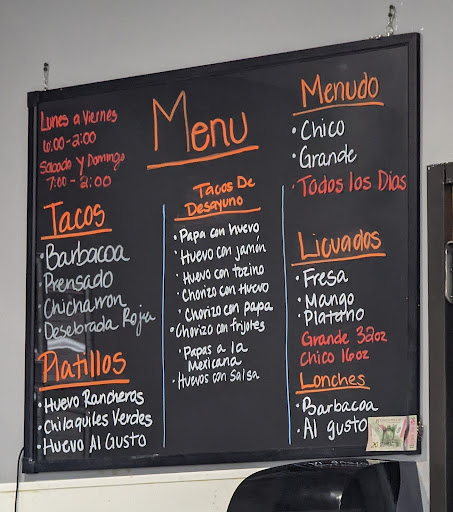 Lunes a Viernes
6:00-2:00
Sabado y Domingo
7:00 - 2:00
Tacos
• Barbacoa
• Prensado
• Chicharron
• Desebrada Roja
Platillos
• Huevo Rancheros
• Chilaquiles Verdes
• Huevo Al Gusto
Menu
Tacos De
Desayuno
• Papa con huevo
• Huevo con jamón
• Huevo con tozino
• Chorizo con Huevo
• Chorizo con papa
• Chorizo con frijoles
• Papas a la
Mexicana
• Huevos con Salsa
Menudo
• Chico
• Grande
• Todos los Dias
Licuados
• Fresa
• Mango
• Platano
Grande 32oz
Chico 16oz
Lonches
• Barbacoa
• Al gusto